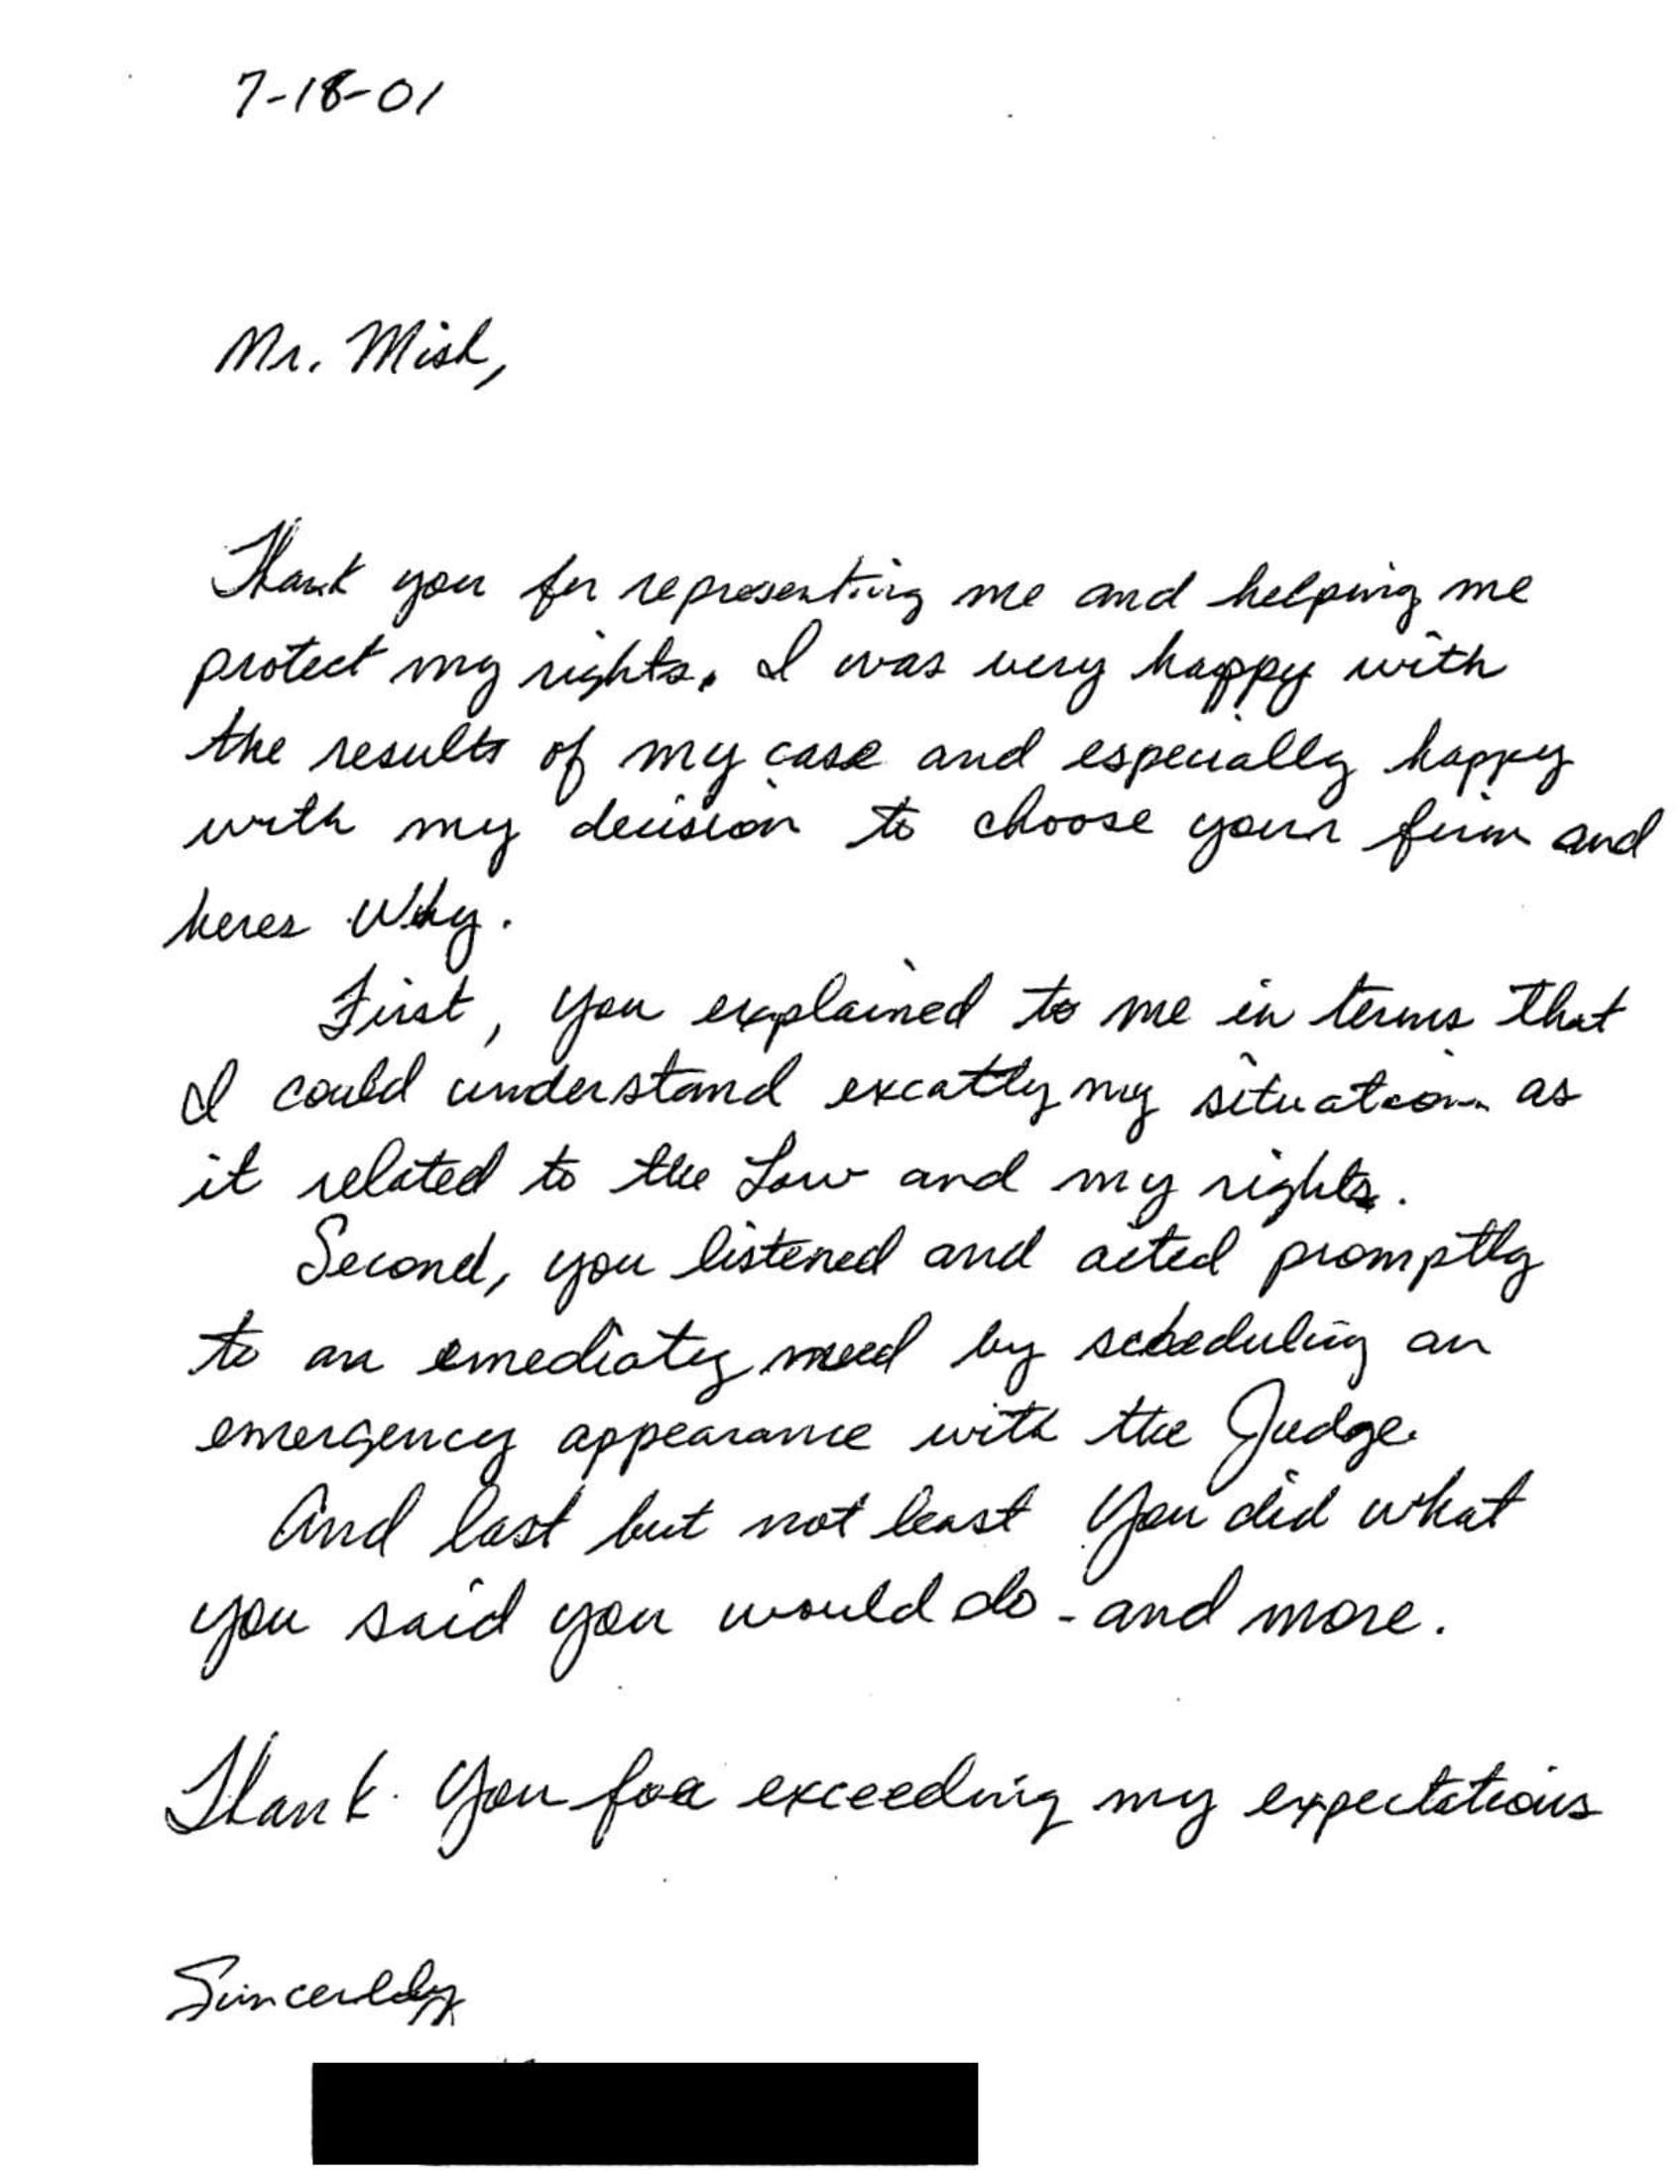 7-18-01
Mr. Mish,
Thank you for representing me and helping me
protect my rights. I was very happy with
the results of my case and especially happy
with my decision to choose your firm and
heres Why.
First, you explained to me in terms that
I could understand excatly my situation as
it related to the Law and my rights.
Second, you listened and acted promptly
to an emediatey need by scheduling an
emergency appearance with the Judge.
And last but not least You did what
you said you would do - and more.
Thank You for exceeding my expectations
Sincerely